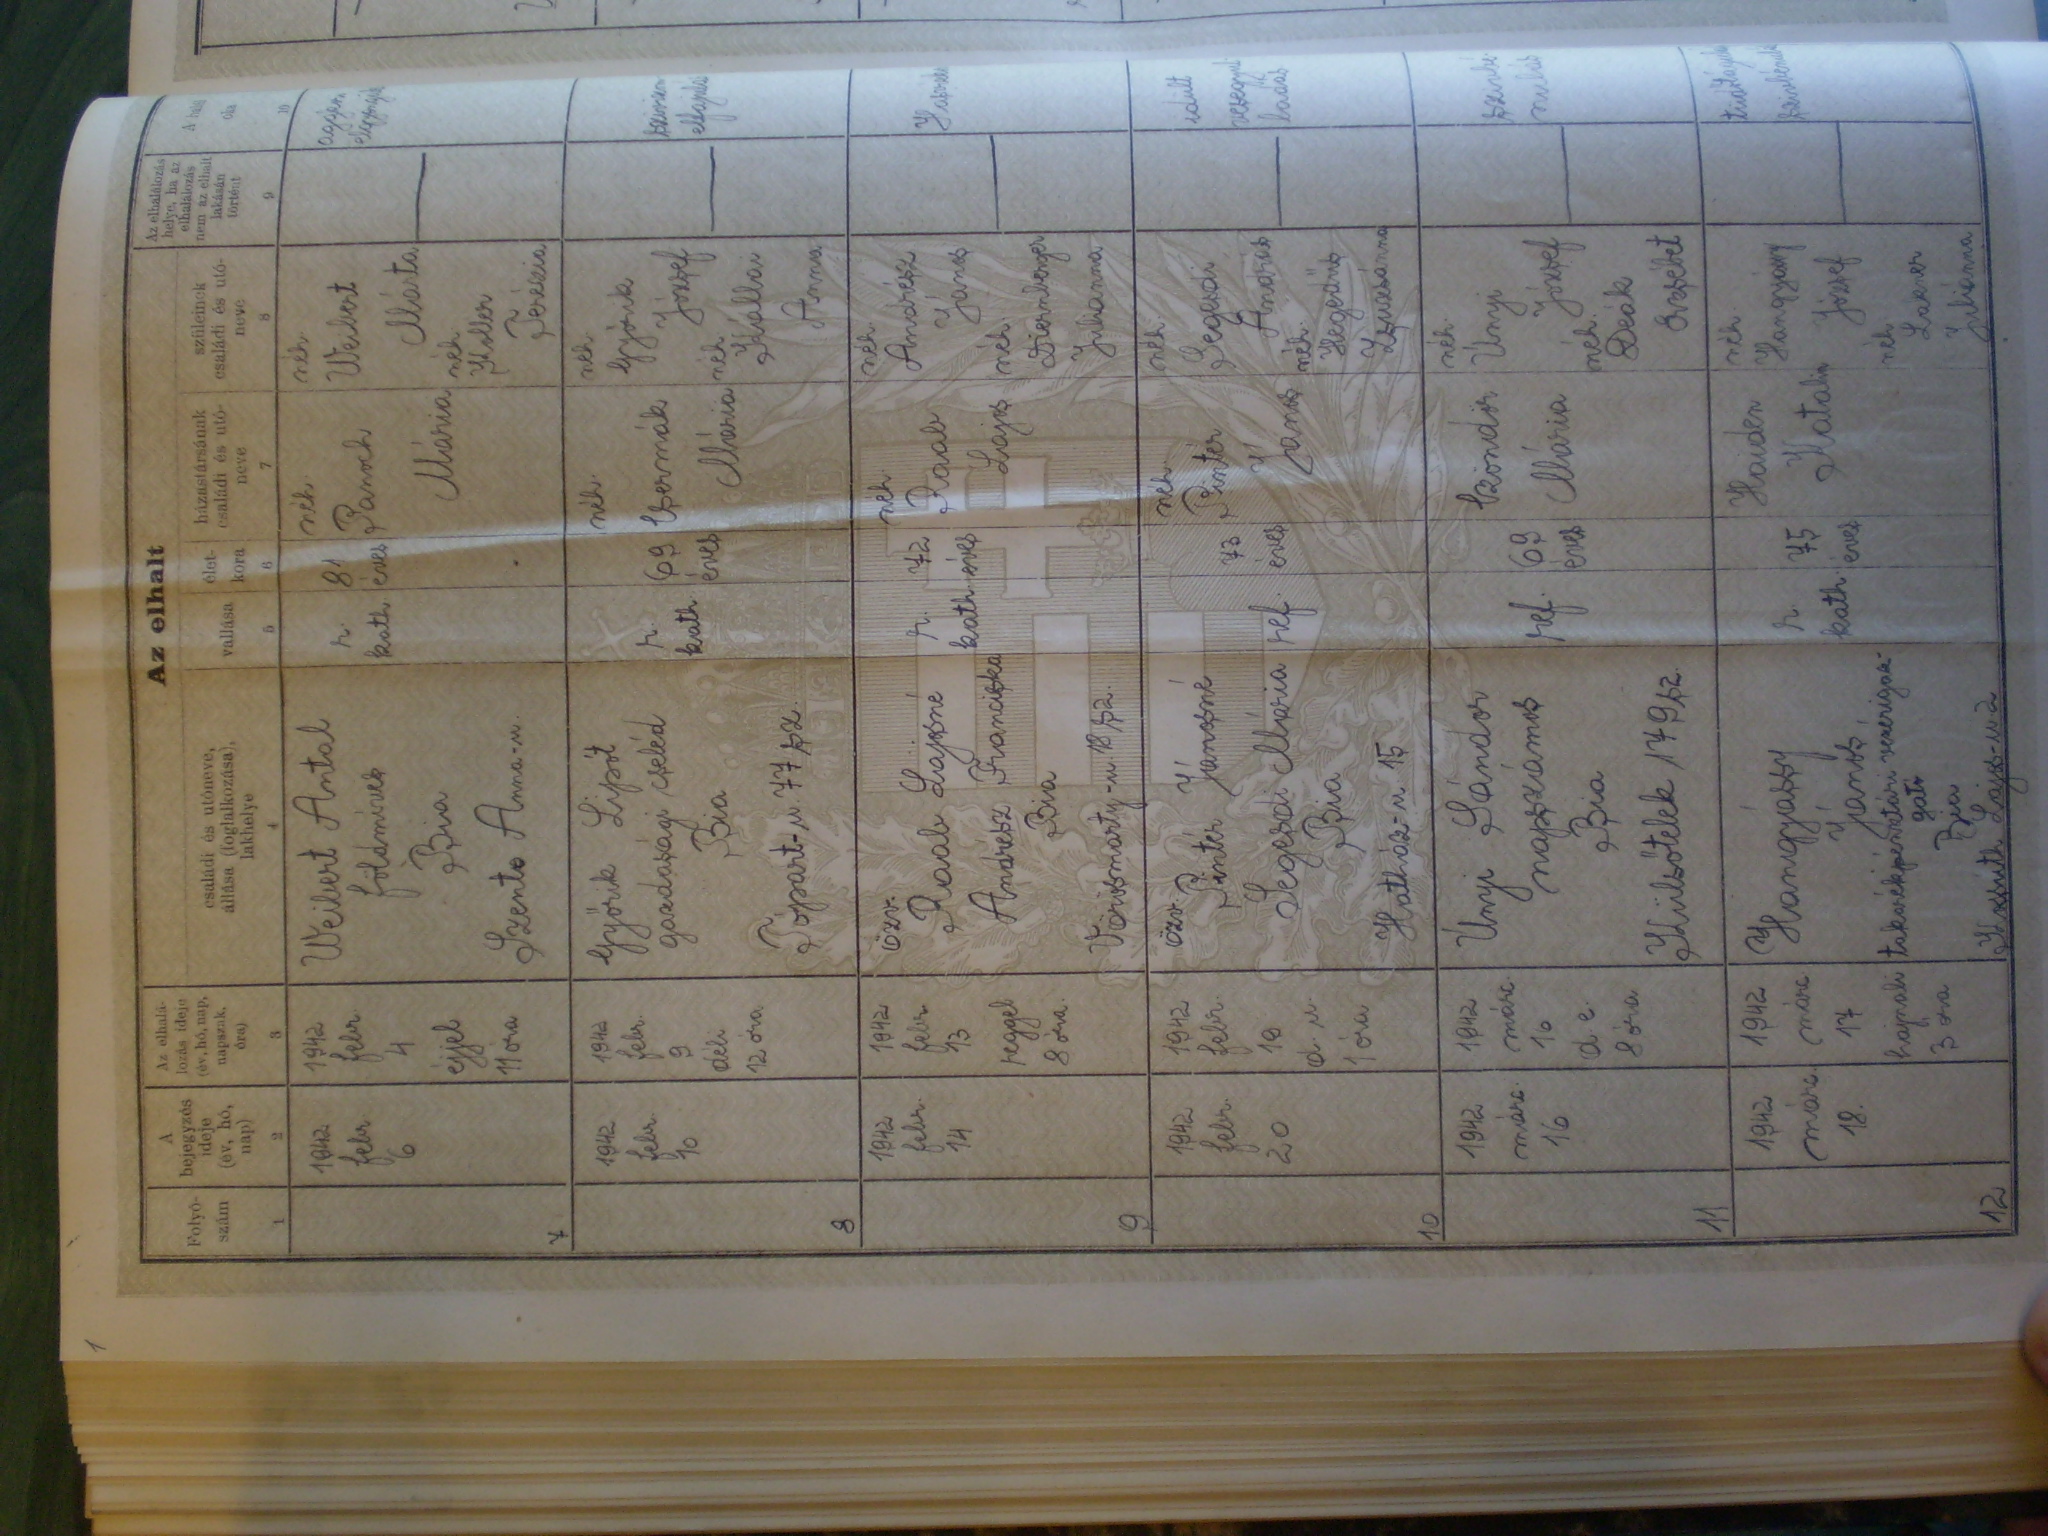 1
Az elhalt
Folyó-
szám
1
A
bejegyzés
ideje
(év, hó,
nap)
2
Az elhalá-
lozás ideje
(év, hó, nap,
napszak,
óra)
3
családi és utóneve,
állása (foglalkozása),
lakhelye
4
vallása
5
élet-
kora
6
házastársának
családi és utó-
neve
7
szüleinek
családi és utó-
neve
8
Az elhalálozás
helye, ha az
elhalálozás
nem az elhalt
lakásán
történt
9
A halál
oka
10
7
1942
febr.
6
1942
febr.
4
éjjel
11 óra
Weibert Antal
földműves
Bia
Szent Anna-u.
r.
kath.
81
éves
néh.
Mária
néh.
Weibert
Márta
néh.
Koller
Terézia
8
1942
febr.
10
1942
febr.
9
déli
12 óra
Győrik Lipót
gazdasági cseléd
Bia
Tópart-u. 77 sz.
r.
kath.
69
éves
néh.
Csermák
Mária
néh.
Győrik
József
néh.
Anna
9
1942
febr.
14
1942
febr.
13
reggel
8 óra.
özv.
Raab Lajosné
Andrész Franciska
Bia
Vörösmarty-u. 18 sz.
r.
kath.
72
éves
néh.
Raab
Lajos
néh.
Andrész
János
néh.
Julianna
10
1942
febr.
20
1942
febr.
19
d. u.
1 óra
özv.
Pintér Jánosné
Segesdi Mária
Bia
Hatház-u. 15
ref.
73
éves
néh.
Pintér
János
néh.
Segesdi
András
néh.
Hegedűs
Zsuzsánna
idült
11
1942
márc.
16
1942
márc.
16
d. e.
8 óra
Unyi Sándor
napszámos
Bia
Külsőtelek 179 sz.
ref.
69
éves
Mária
néh.
Unyi
József
néh.
Deák
Erzsébet
12
1942
márc.
18.
1942
márc.
17
hajnali
3 óra
Hangyássy
János
takarékpénztári vezérigaz-
gató
Bia
Kossuth Lajos-u 2
r.
kath.
75
éves
Haiden
Katalin
néh.
József
néh.
Julianna